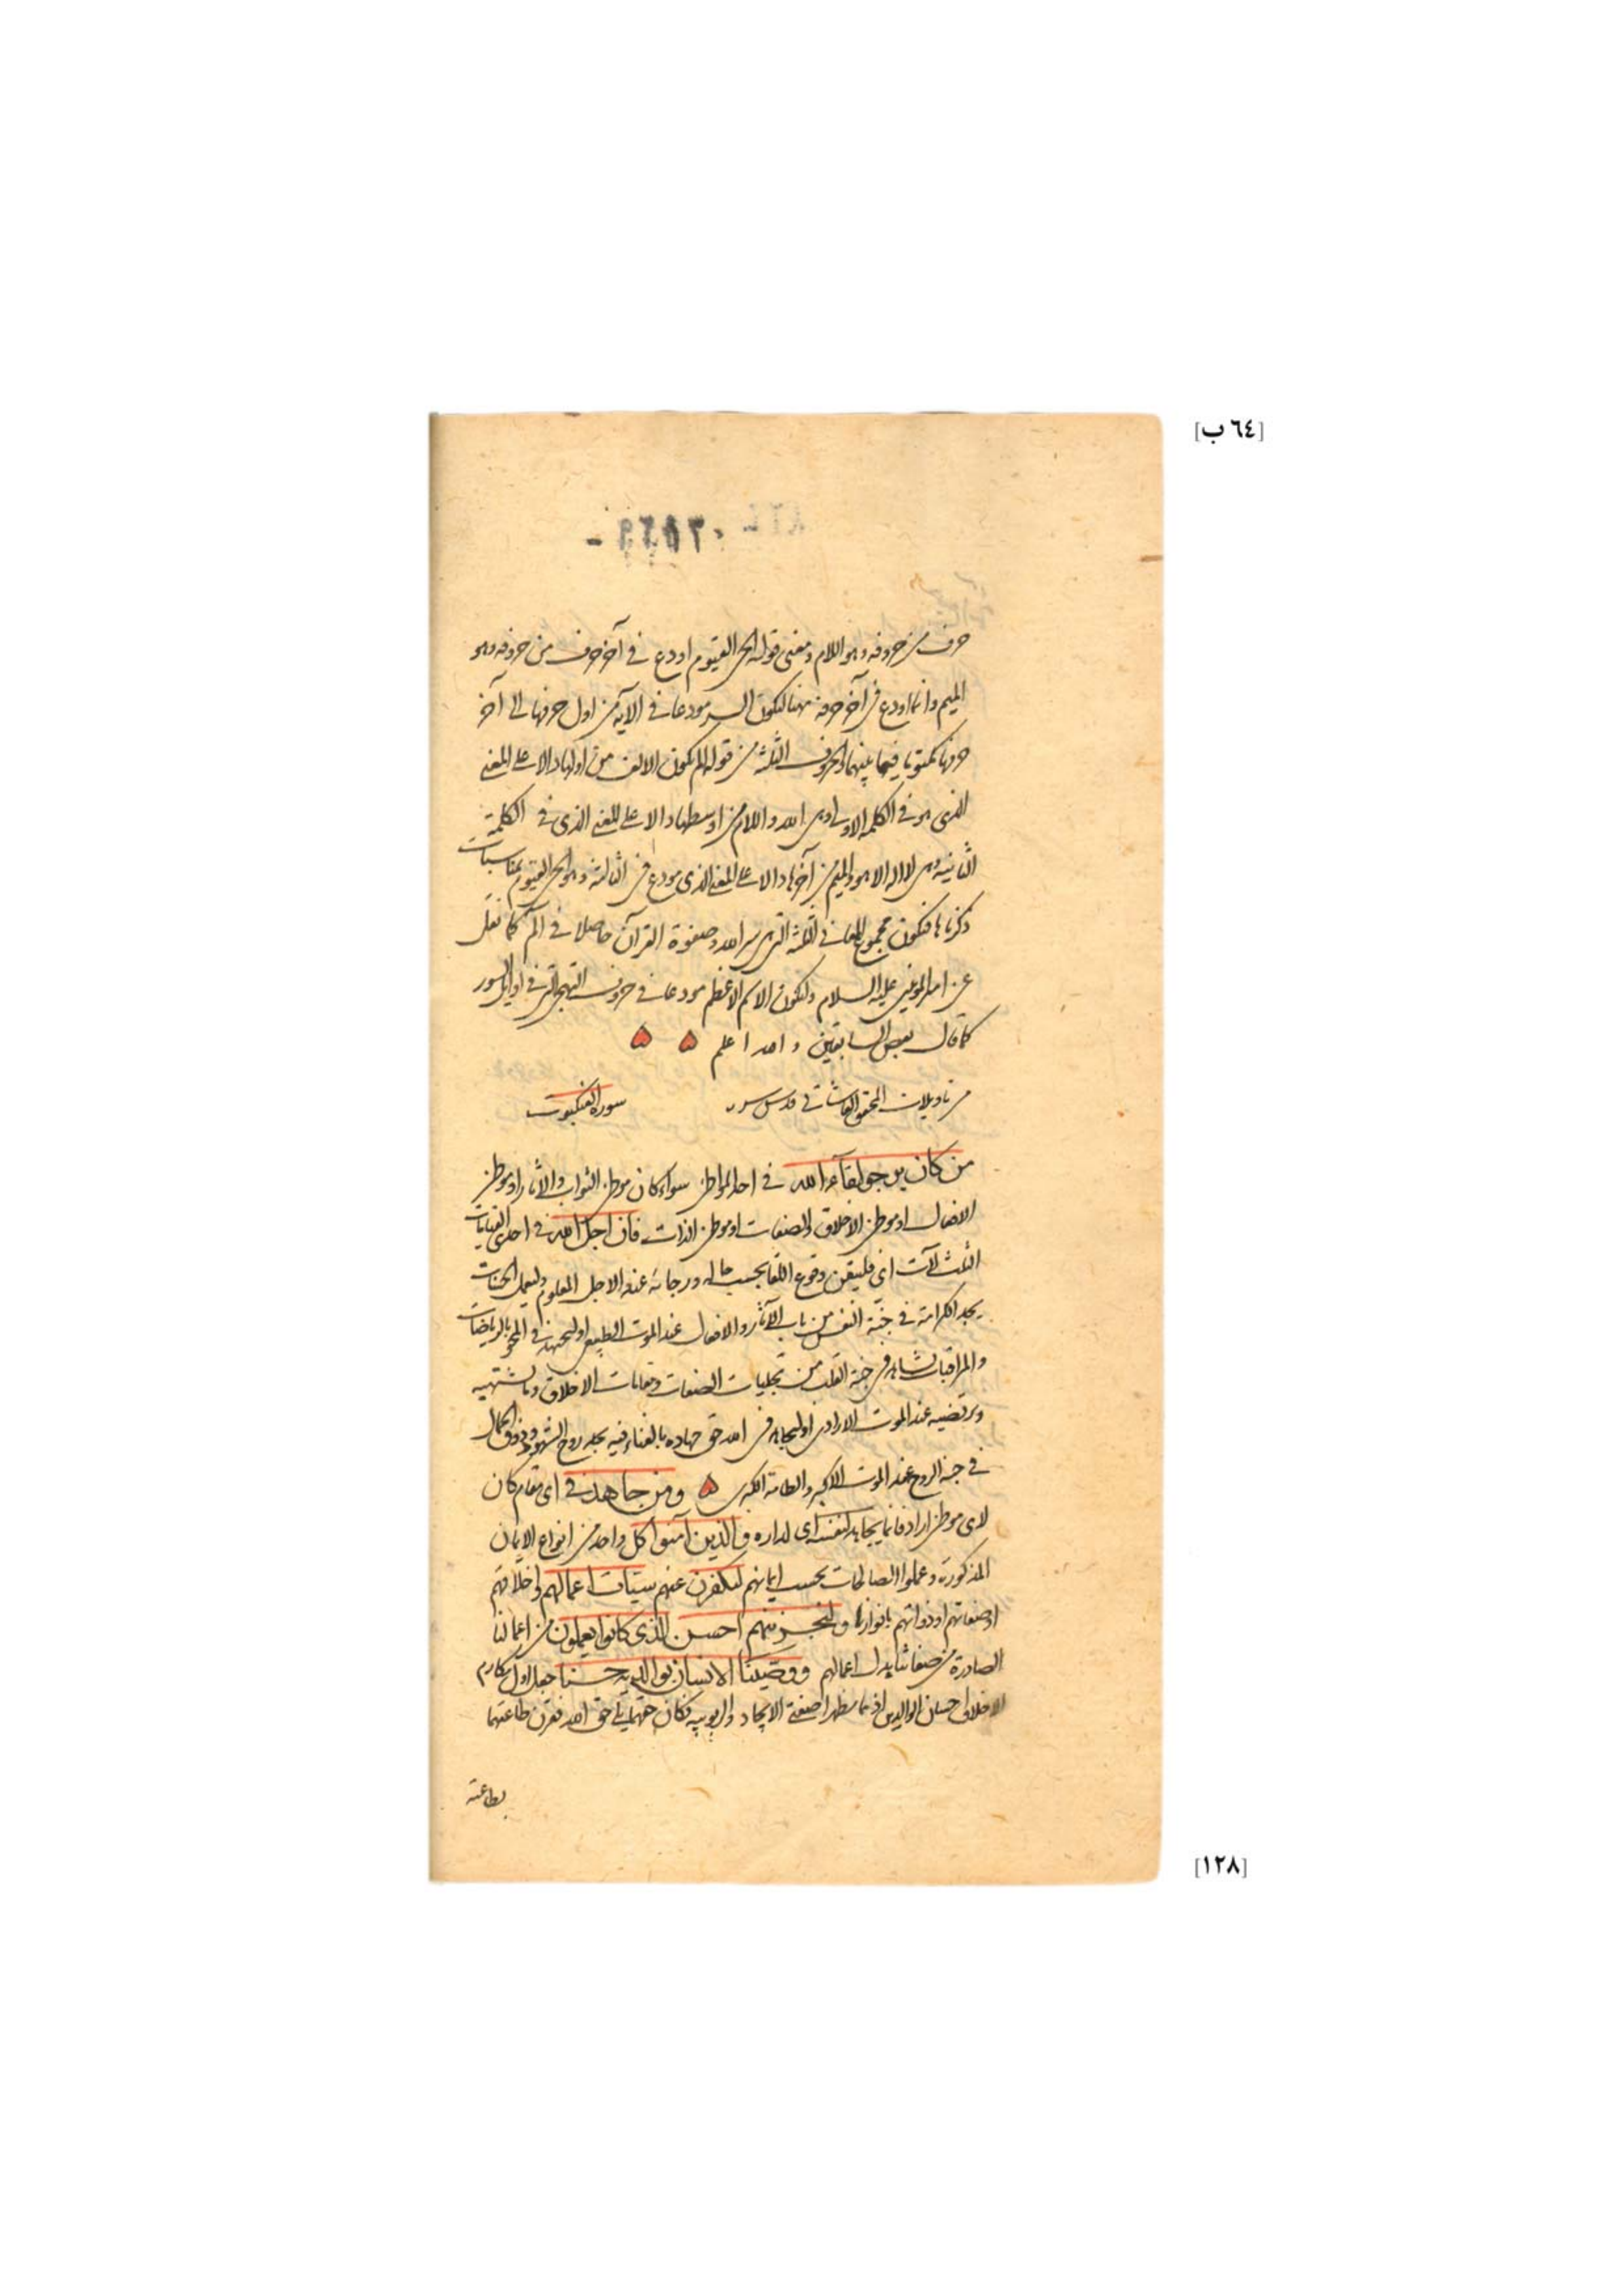 [٦٤ ب]
حرف من حروفه وهو اللام ومعنى قوله الحي القيوم اودع في آخر حرف من حروفه وهو
الميم وانما اودع في آخر حرف ههنا ليكون السر مودعا في الآية من اول حرفها الى آخر
حرفها مكتوبا فيما بينهما والحروف الثلثة من قوله الم يكون الالف من اولها دالا على المعنى
الذي هو في الكلمة الاولى وهي الله واللام من اوسطها دالا على المعنى الذي في الكلمة
الثانية وهي لا اله الا هو والميم من آخرها دالا على المعنى الذي مودع في الثالثة وهو الحي القيوم بمناسبات
ذكرناها فيكون مجموع المعاني الثلثة التي هي سر الله وصفوة القرآن حاصلا في الم كما نقل
عن امير المؤمنين عليه السلام وليكون الاسم الاعظم مودعا في حروف التهجي التي في اوايل السور
كما قال بعض السابقين والله اعلم ه ه
من تاويلات المحقق القاشاني قدس سره سورة العنكبوت
من كان يرجو لقآء الله في احد المواطن سواء كان موطن الثواب والآثار او موطن
الافعال او موطن الاخلاق والصفات او موطن الذات فان اجل الله في احدى القيامات
الثلث لآت اي فليتيقن وقوع اللقا بحسب حاله ورجائه عند الاجل المعلوم وليعمل الحسنات
يجد الكرامة في جنة النفس من باب الآثار والافعال عند الموت الطبيعي او ليجتهد في المحو بالرياضات
والمراقبات ليشاهد في جنة القلب من تجليات الصفات ومقامات الاخلاق وما يشتهيه
ويرتضيه عند الموت الارادي او ليجاهد في الله حق جهاده بالفناء فيه يجد روح الشهود وذوق الجمال
في جنة الروح عند الموت الاكبر والطامة الكبرى ه ومن جاهد في اي مقام كان
لاي موطن اراد فانما يجاهد لنفسه اي لداره والذين آمنوا كل واحد من انواع الايمان
المذكورة وعملوا الصالحات بحسب ايمانهم لنكفرن عنهم سيئات اعمالهم واخلاقهم
او صفاتهم او ذواتهم بانوارنا ولنجزينهم احسن الذي كانوا يعملون من اعمالنا
الصادرة من صفاتنا بدل اعمالهم ووصينا الانسان بوالديه حسنا جعل اول مكارم
الاخلاق احسان الوالدين اذ هما مظهرا صفتي الايجاد والربوبية فكان حقهما يلي حق الله فقرن طاعتهما
بطاعته
[١٢٨]